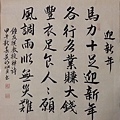 迎新年
馬力十足迎新年
各行各業賺大錢
豐衣足食人人樂
風調雨順無災難